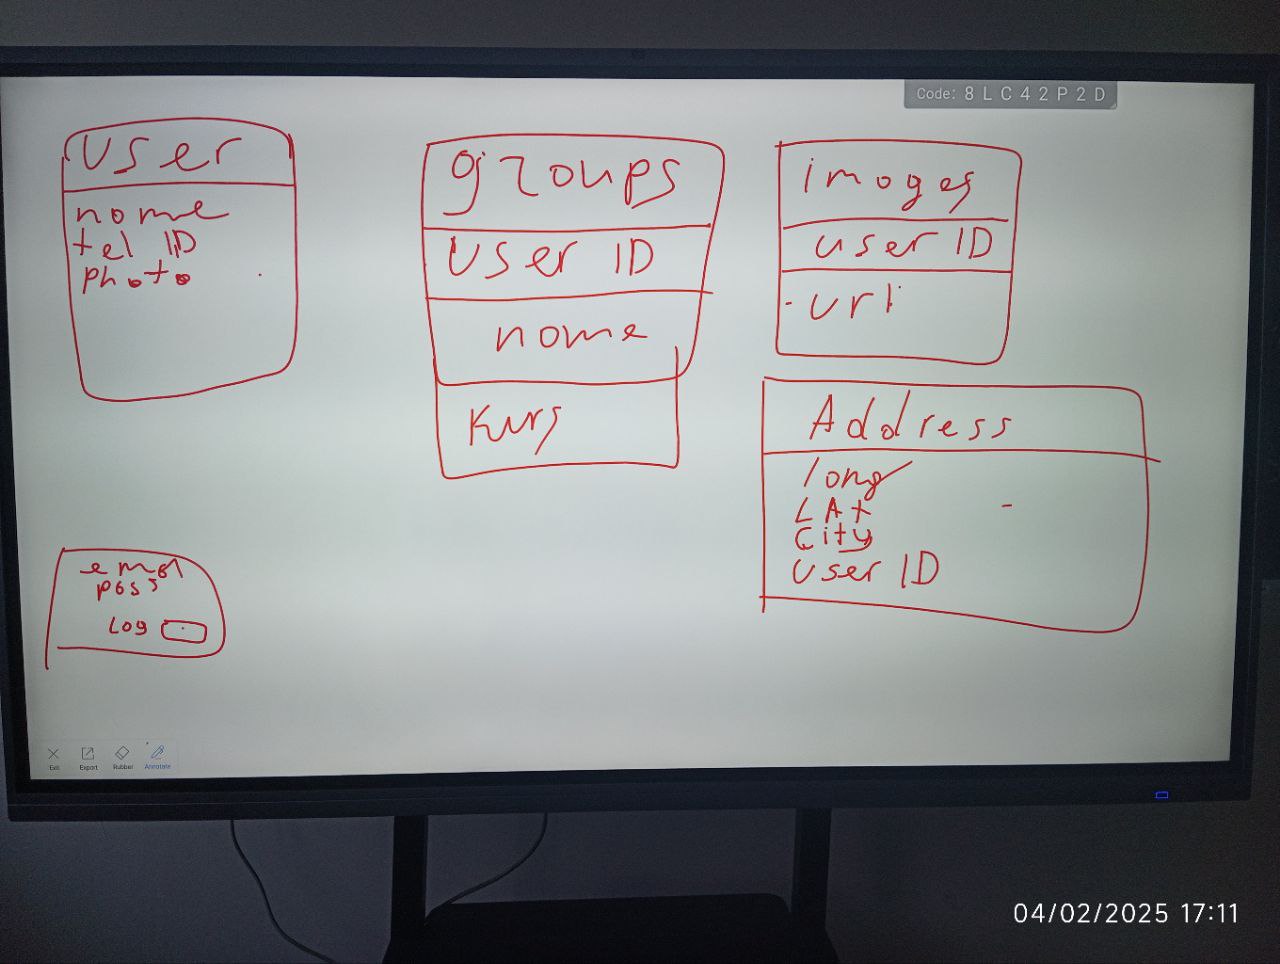 Code: 8 L C 4 2 P 2 D
User
name
tel ID
photo
groups
User ID
name
Kurs
images
user ID
url
Address
long
LAt
City
User ID
emal
pass
Log
Exit
Export
Rubber
Annotate
04/02/2025 17:11